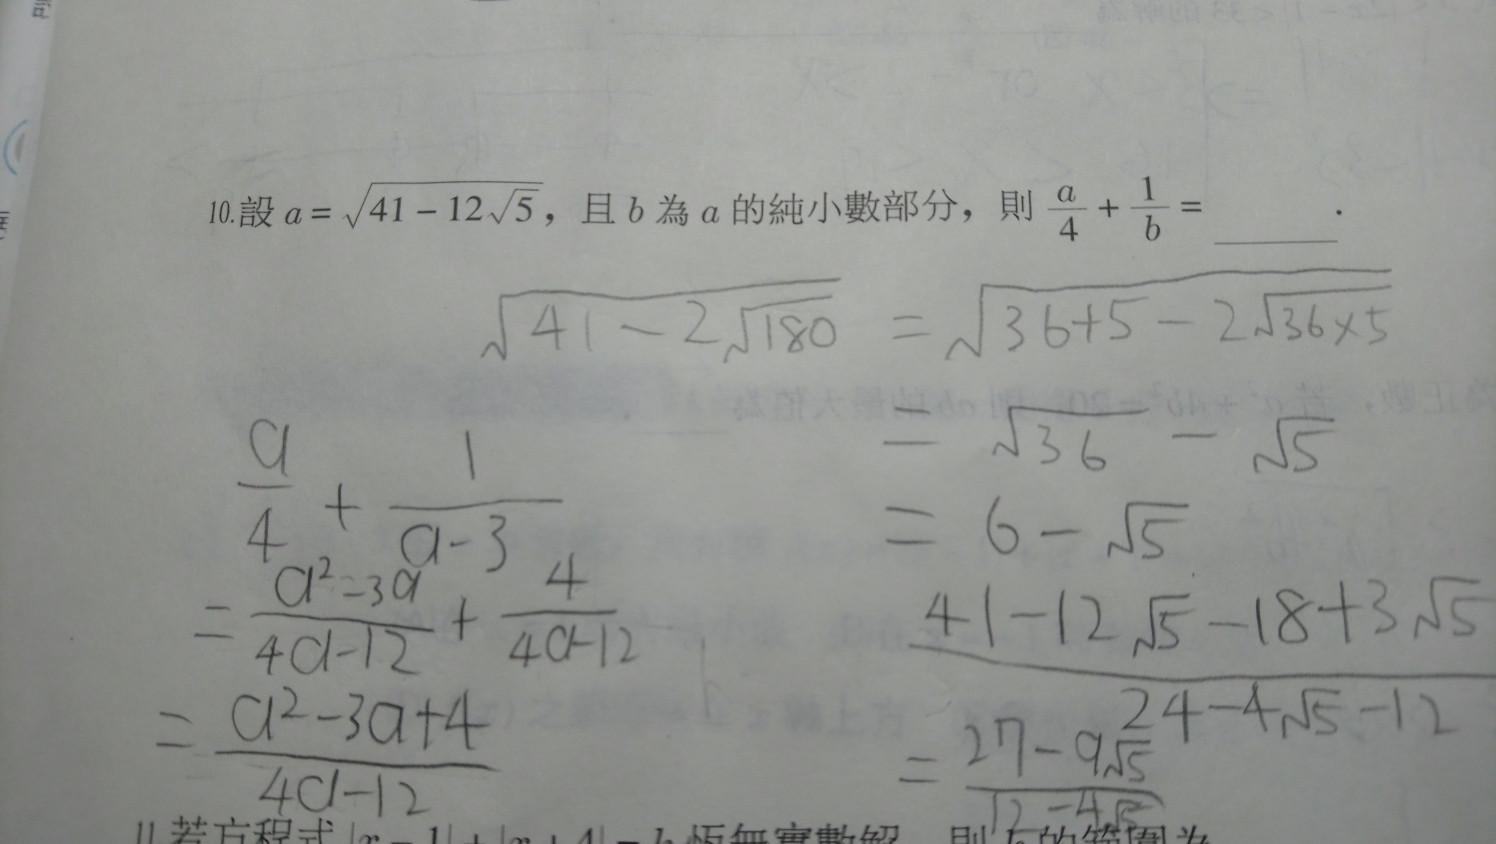 10.設 a = √(41 − 12√5)，且 b 為 a 的純小數部分，則 a/4 + 1/b = ______．
√(41 − 2√180) = √(36+5 − 2√(36×5))
= √36 − √5
= 6 − √5
a/4 + 1/(a-3)
= (a²-3a)/(4a-12) + 4/(4a-12)
= (a²-3a+4)/(4a-12)
(41-12√5-18+3√5)/(24-4√5-12)
= (27-9√5)/(12-4√5)
11.若方程式 |x − 1| + |x + 4| = k 恆無實數解，則 k 的範圍為